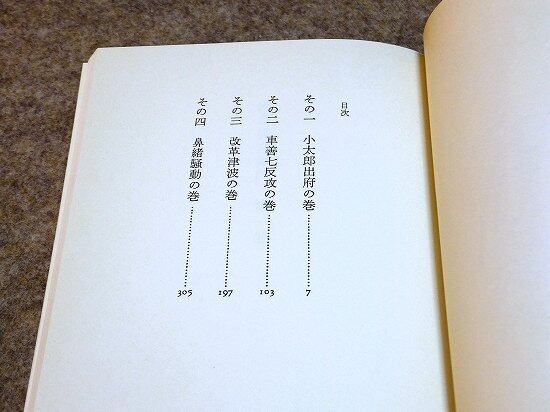 目次
その一 小太郎出府の巻……………………7
その二 車善七反攻の巻……………………103
その三 改革津波の巻……………………197
その四 鼻緒騒動の巻……………………305